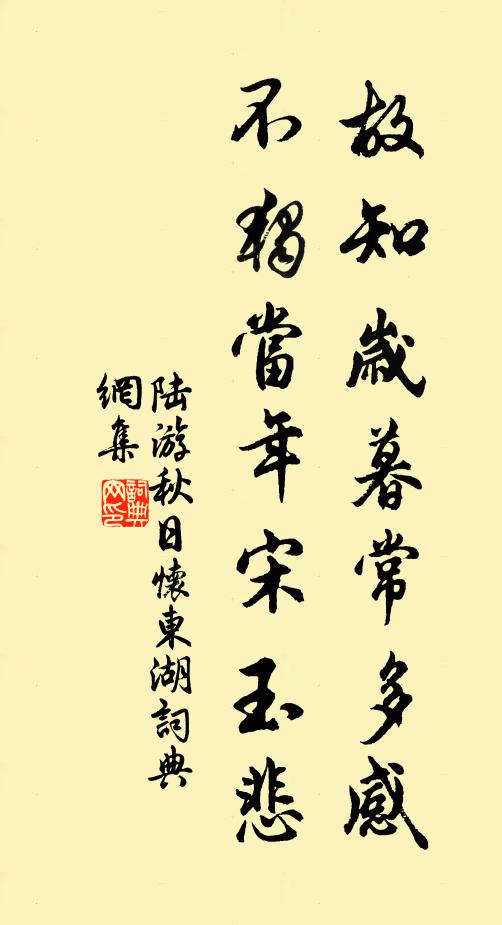 故知歲暮常多感
不獨當年宋玉悲
陸游秋日懷東湖詞典
網集
詞典
网印